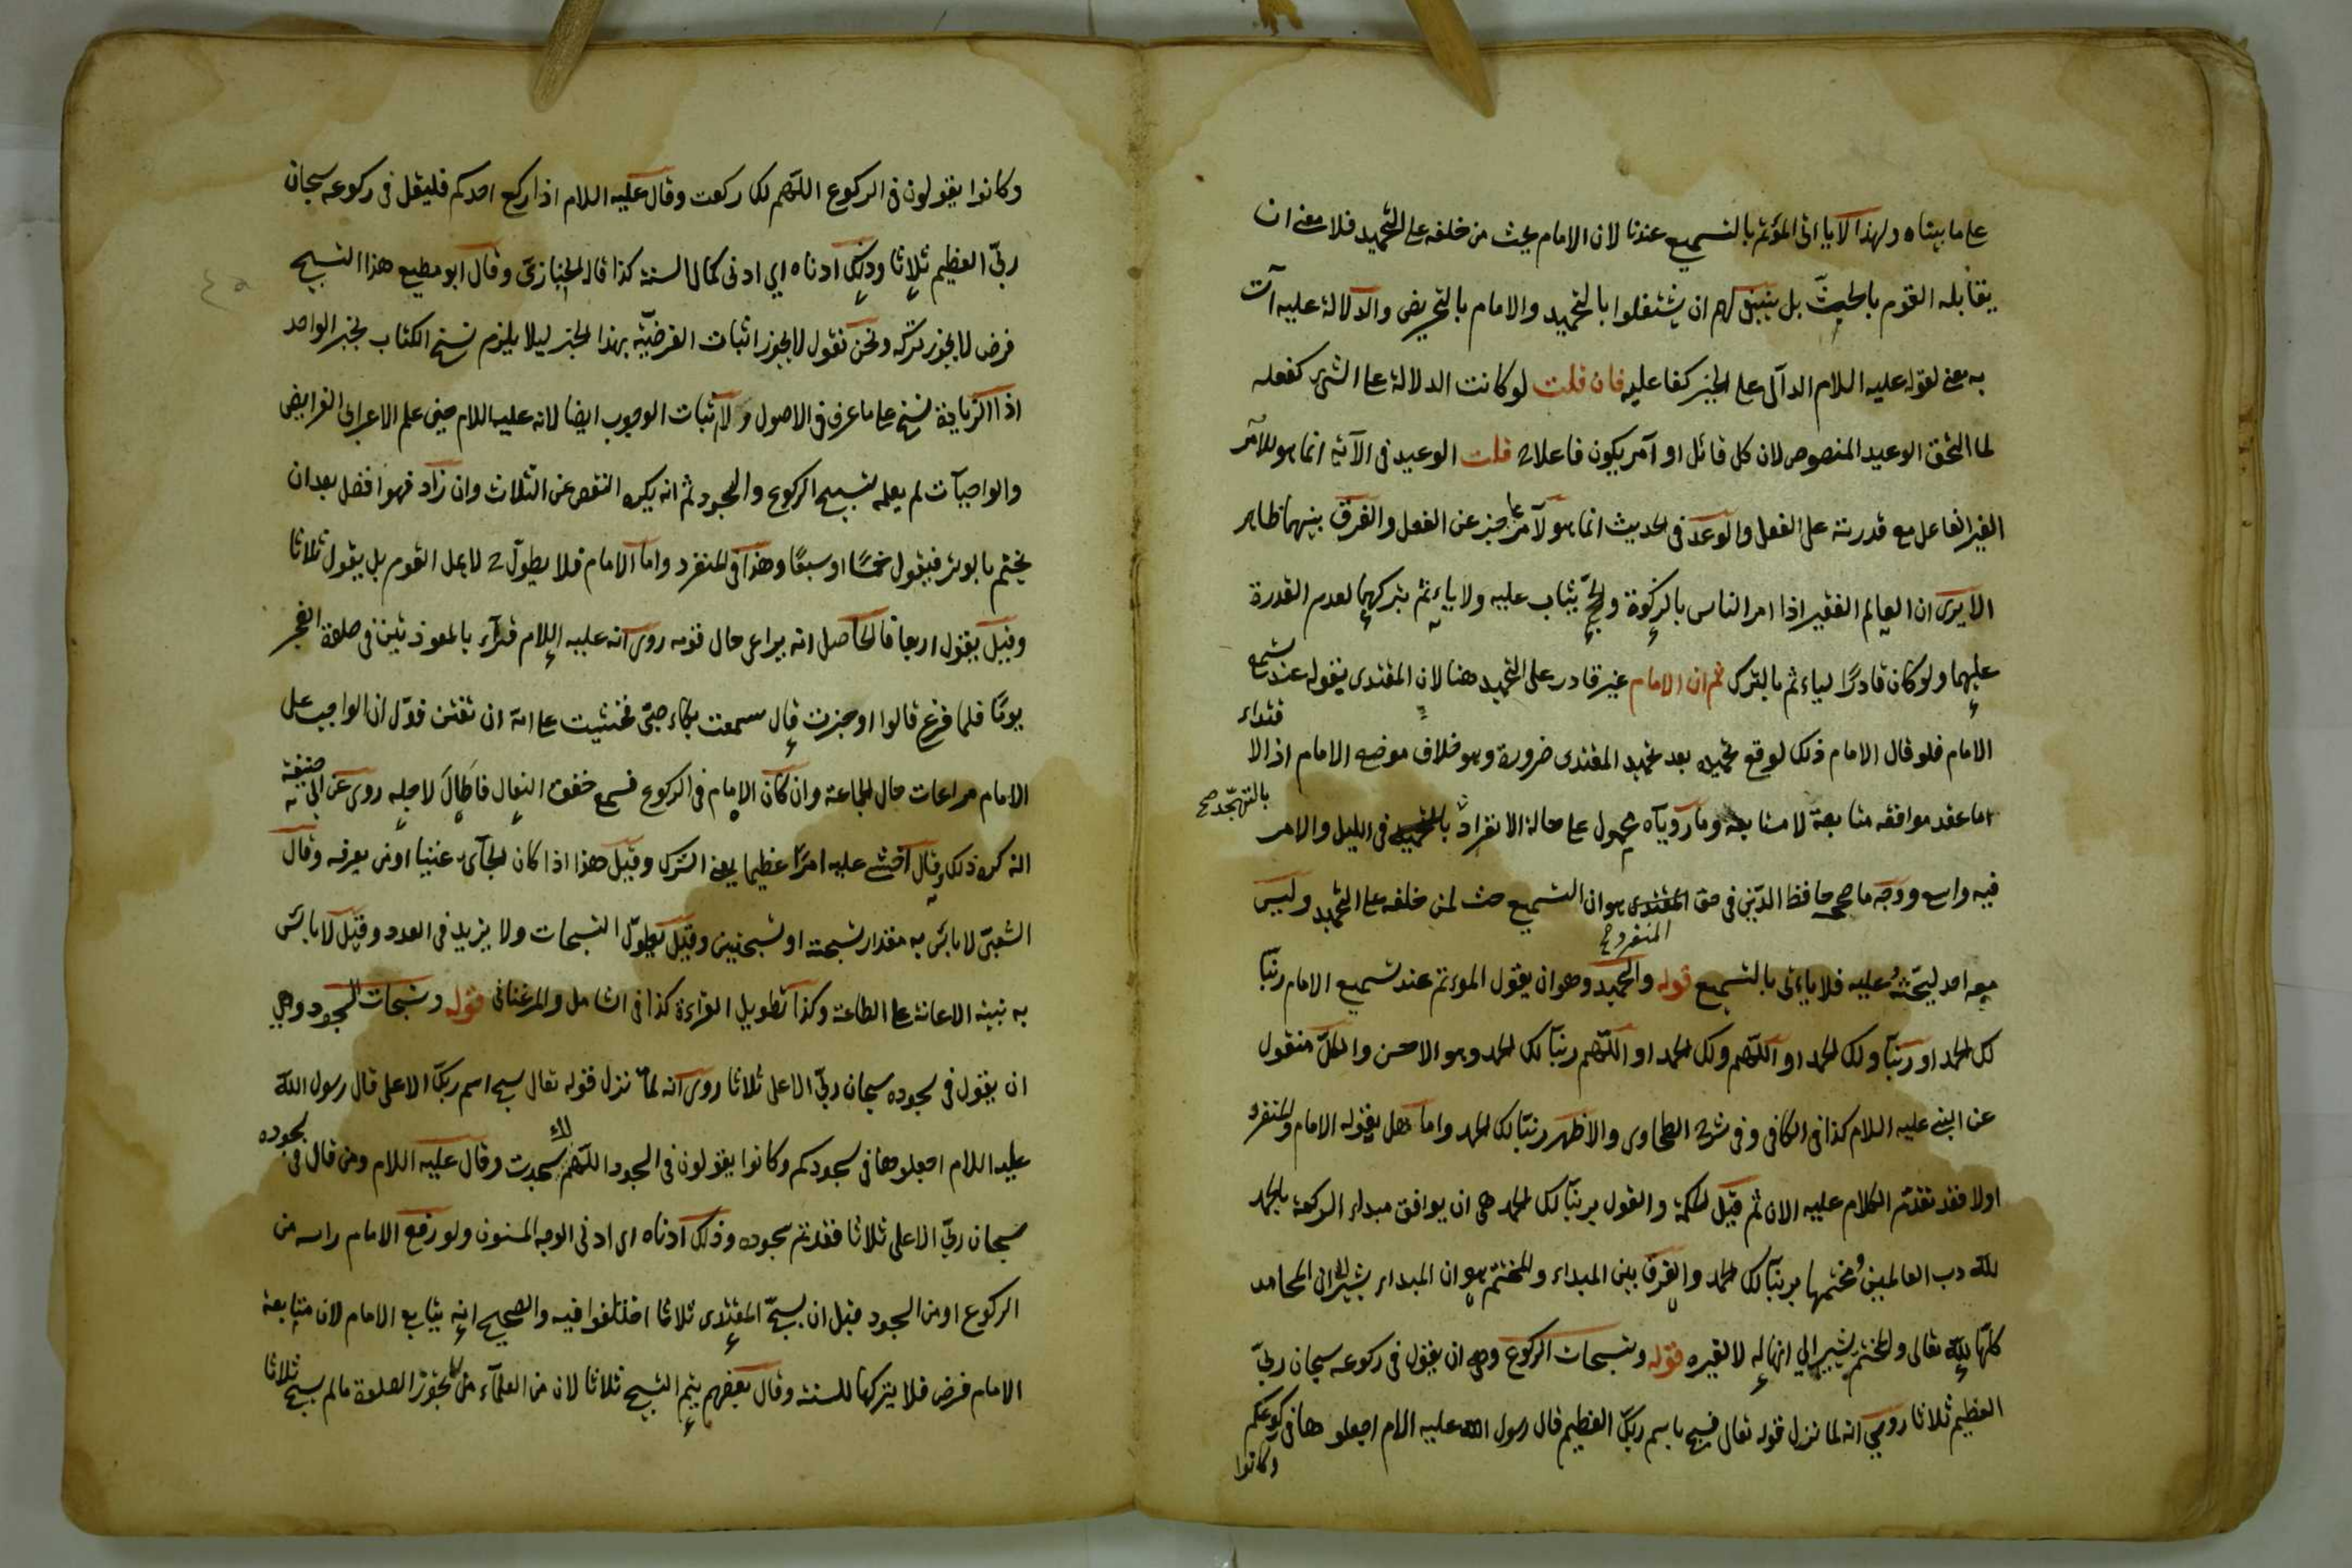 على ما بيناه ولهذا لا ياتى المؤتم بالتسميع عندنا لان الامام يحث من خلفه على التحميد فلا معنى ان
يقابله القوم بالحث بل ينبغى لهم ان يشتغلوا بالتحميد والامام بالتحريض والدلالة عليه آت
به معنى لقوله عليه السلام الدآل على الخير كفاعليه فان قلت لو كانت الدلالة على الشئ كفعله
لما التحق الوعيد المنصوص لان كل قائل او آمر يكون فاعلا قلت الوعيد فى الآية انما هو للآمر
الغير الفاعل مع قدرته على الفعل والوعد فى الحديث انما هو لآمر عاجز عن الفعل والفرق بينهما ظاهر
الا يرى ان العالم الفقير اذا امر الناس بالزكوة والحج يثاب عليه ولا ياءثم بتركهما لعدم القدرة
عليهما ولو كان قادرًا لياءثم بالترك ثم ان الامام غير قادر على التحميد هنا لان المقتدى يقوله عند تسميع
الامام فلو قال الامام ذلك لوقع تحميده بعد تحميد المقتدى ضرورة وهو خلاف موضع الامام اذ الا
قتداء
اما عقد موافقه متابعة لا مسابقة وما رويآه محمول على حالة الانفراد بالتهجد صح فى الليل والامر
فيه واسع ووجه ما صححه حافظ الدين فى حق المقتدى هو ان التسميع حث لمن خلفه على التحميد وليس
المنفرد صح
معه احد ليحثّه عليه فلا ياءتى بالتسميع قوله والتحميد وهو ان يقول الموءتم عند تسميع الامام ربّنا
لك الحمد او ربّنا ولك الحمد او اللّهم ولك الحمد او اللّهم ربّنا لك الحمد وهو الاحسن والكلّ منقول
عن النبى عليه السلام كذا فى الكافى وفى شرح الطحاوى والاظهر ربّنا لك الحمد واما هل يقوله الامام والمنفرد
اولا فقد تقدّم الكلام عليه الان ثم قيل الحكمة والقول بربّنا لك الحمد هى ان يوافق مبداء الركعة بالحمد
لله رب العالمين ومختمها بربّنا لك الحمد والفرق بين المبداء والمختم هو ان المبداء يشير الى ان المحامد
كلّها للّه تعالى والمختم يشير الى انها له لا لغيره قوله وتسبيحات الركوع وهى ان يقول فى ركوعه سبحان ربىّ
العظيم ثلاثا روى انه لما نزل قوله تعالى فسبح باسم ربك العظيم قال رسول الله عليه السلام اجعلوها فى ركوعكم
وكانوا
وكانوا يقولون فى الركوع اللّهم لك ركعت وقال عليه السلام اذا ركع احدكم فليقل فى ركوعه سبحان
ربىّ العظيم ثلاثا وذلك ادناه اي ادنى كمال السنة كذا قال الخبازىّ وقال ابو مطيع هذا التسبيح
فرض لا يجوز تركه ونحن نقول لا يجوز اثبات الفرضيّة بهذا الخبر ليلا يلزم نسخ الكتاب بخبر الواحد
اذ الزيادة نسخ على ما عرف فى الاصول ولا اثبات الوجوب ايضا لانه عليه السلام حين علم الاعرابى الفرايض
والواجبآت لم يعلمه تسبيح الركوع والسجود ثم انه يكره النقص عن الثلاث وان زاد فهو افضل بعد ان
يختم بالوتر فيقول خمسًا او سبعًا وهذا فى المنفرد واما الامام فلا يطول لا يمل القوم بل يقول ثلاثا
وقيل يقول اربعا فالحاصل انه يراعى حال قومه روى انه عليه السلام قرآء بالمعوذتين فى صلوة الفجر
يومًا فلما فرغ قالوا اوجزت قال سمعت بكاء صبىّ فخشيت على امّه ان تفتن فدلّ ان الواجب على
الامام مراعات حال الجماعة وان كان الامام فى الركوع فسمع خفق النعال فاطال لاجله روى عن ابى حنيفة
انه كره ذلك وقال اخشى عليه امرًا عظيما يعنى الشرك وقيل هذا اذا كان الجآئى غنيا او من يعرفه وقال
الشعبىّ لا باس به مقدار تسبيحة او تسبيحتين وقيل يطوّل التسبيحات ولا يزيد فى العدد وقيل لا باس
به بنيّة الاعانة على الطاعة وكذا تطويل القراءة كذا فى الشامل والمرغنانى قوله وتسبيحات السجود وهى
ان يقول فى سجوده سبحان ربىّ الاعلى ثلاثا روى انه لمّا نزل قوله تعالى سبح اسم ربك الاعلى قال رسول اللّه
عليه السلام اجعلوها فى سجودكم وكانوا يقولون فى السجود اللّهم لك سجدت وقال عليه السلام ومن قال فى سجوده
سبحان ربىّ الاعلى ثلاثا فقد تم سجوده وذلك ادناه اى ادنى الوجه المسنون ولو رفع الامام راسه من
الركوع او من السجود قبل ان يسبحّ المقتدى ثلاثا اختلفوا فيه والصحيح انه يتابع الامام لان متابعة
الامام فرض فلا يتركها للسنة وقال بعضهم يتم التسبيح ثلاثا لان من العلمآء من لا يجوّز الصلوة ما لم يسبح ثلاثا